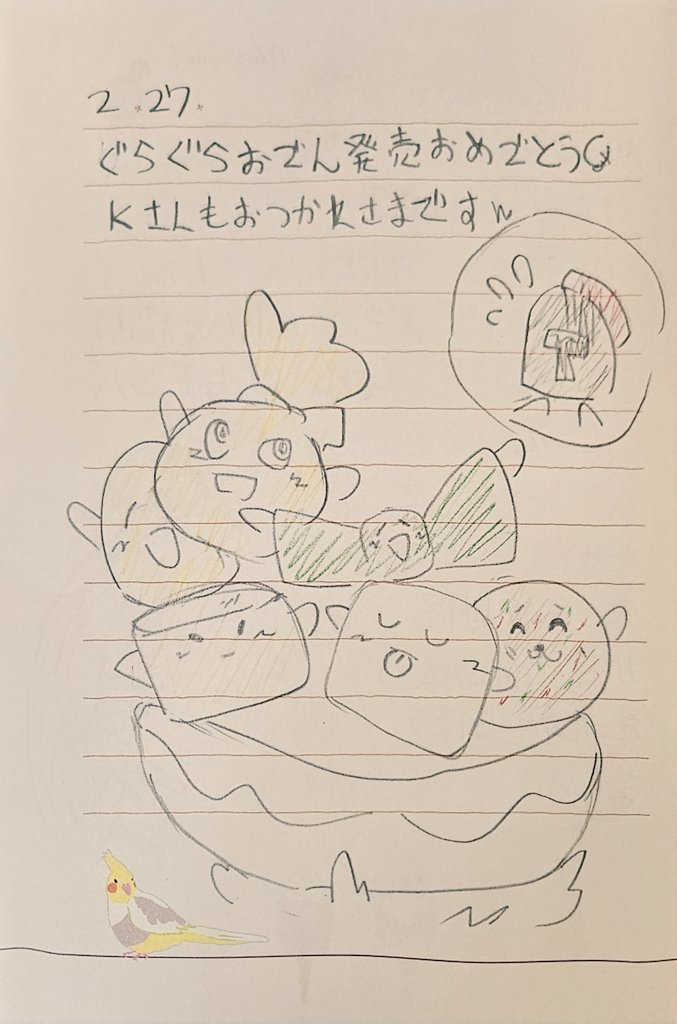 2.27.
ぐらぐらおでん発売おめでとう
Kさんもおつかれさまですw
T